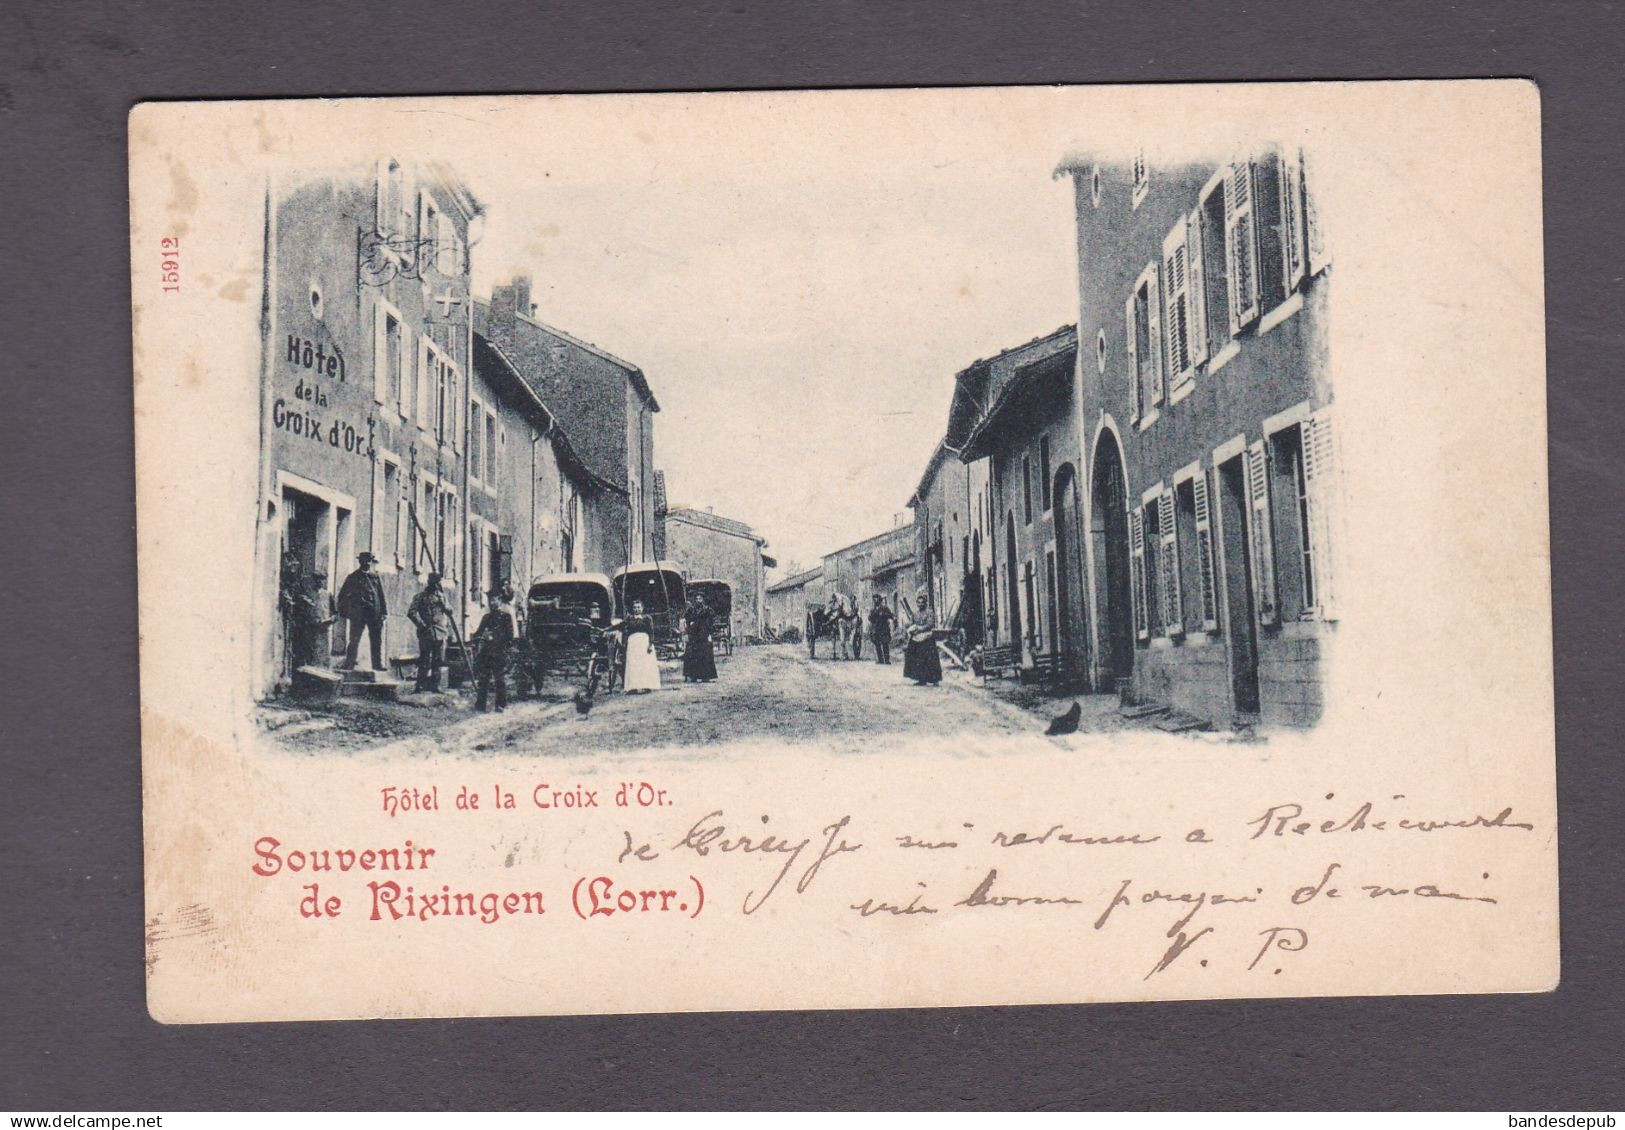 15912
Hôtel
de la
Croix d'Or.
Hôtel de la Croix d'Or.
Souvenir
de Rixingen (Lorr.)
de Cirey Je suis revenu a Réchicourt
une bonne poignée de main
V. P.
delcampe.net
bandesdepub